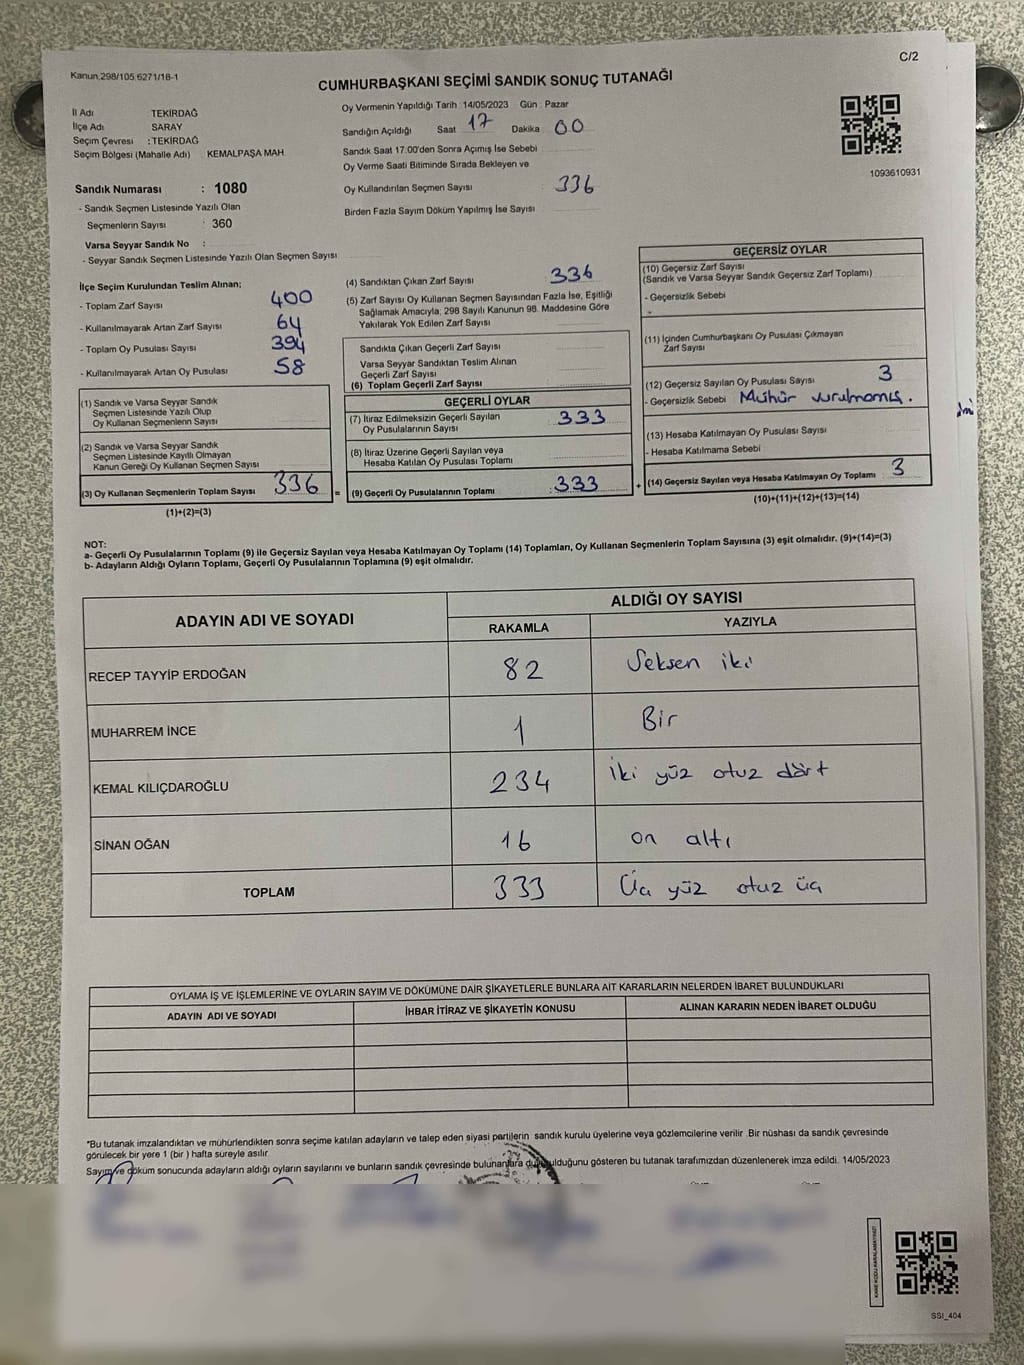 Kanun.298/105.6271/1B-1
C/2
CUMHURBAŞKANI SEÇİMİ SANDIK SONUÇ TUTANAĞI
İl Adı TEKİRDAĞ
İlçe Adı SARAY
Seçim Çevresi : TEKİRDAĞ
Seçim Bölgesi (Mahalle Adı) KEMALPAŞA MAH.
Sandık Numarası : 1080
- Sandık Seçmen Listesinde Yazılı Olan
Seçmenlerin Sayısı : 360
Varsa Seyyar Sandık No :
- Seyyar Sandık Seçmen Listesinde Yazılı Olan Seçmen Sayısı
Oy Vermenin Yapıldığı Tarih : 14/05/2023 Gün : Pazar
Sandığın Açıldığı Saat 17 Dakika 00
Sandık Saat 17:00'den Sonra Açımış İse Sebebi
Oy Verme Saati Bitiminde Sırada Bekleyen ve
Oy Kullandırılan Seçmen Sayısı 336
Birden Fazla Sayım Döküm Yapılmış İse Sayısı
1093610931
İlçe Seçim Kurulundan Teslim Alınan;
- Toplam Zarf Sayısı 400
- Kullanılmayarak Artan Zarf Sayısı 64
- Toplam Oy Pusulası Sayısı 394
- Kullanılmayarak Artan Oy Pusulası 58
(1) Sandık ve Varsa Seyyar Sandık
Seçmen Listesinde Yazılı Olup
Oy Kullanan Seçmenlerin Sayısı
(2) Sandık ve Varsa Seyyar Sandık
Seçmen Listesinde Kayıtlı Olmayan
Kanun Gereği Oy Kullanan Seçmen Sayısı
(3) Oy Kullanan Seçmenlerin Toplam Sayısı 336
(1)+(2)=(3)
(4) Sandıktan Çıkan Zarf Sayısı 336
(5) Zarf Sayısı Oy Kullanan Seçmen Sayısından Fazla İse, Eşitliği
Sağlamak Amacıyla; 298 Sayılı Kanunun 98. Maddesine Göre
Yakılarak Yok Edilen Zarf Sayısı
Sandıkta Çıkan Geçerli Zarf Sayısı
Varsa Seyyar Sandıktan Teslim Alınan
Geçerli Zarf Sayısı
(6) Toplam Geçerli Zarf Sayısı
GEÇERLİ OYLAR
(7) İtiraz Edilmeksizin Geçerli Sayılan
Oy Pusulalarının Sayısı : 333
(8) İtiraz Üzerine Geçerli Sayılan veya
Hesaba Katılan Oy Pusulası Toplamı
= (9) Geçerli Oy Pusulalarının Toplamı : 333
GEÇERSİZ OYLAR
(10) Geçersiz Zarf Sayısı
(Sandık ve Varsa Seyyar Sandık Geçersiz Zarf Toplamı)
- Geçersizlik Sebebi
(11) İçinden Cumhurbaşkanı Oy Pusulası Çıkmayan
Zarf Sayısı
(12) Geçersiz Sayılan Oy Pusulası Sayısı 3
- Geçersizlik Sebebi Mühür vurulmamış.
(13) Hesaba Katılmayan Oy Pusulası Sayısı
- Hesaba Katılmama Sebebi
+ (14) Geçersiz Sayılan veya Hesaba Katılmayan Oy Toplamı 3
(10)+(11)+(12)+(13)=(14)
NOT:
a- Geçerli Oy Pusulalarının Toplamı (9) ile Geçersiz Sayılan veya Hesaba Katılmayan Oy Toplamı (14) Toplamları, Oy Kullanan Seçmenlerin Toplam Sayısına (3) eşit olmalıdır. (9)+(14)=(3)
b- Adayların Aldığı Oyların Toplamı, Geçerli Oy Pusulalarının Toplamına (9) eşit olmalıdır.
ADAYIN ADI VE SOYADI ALDIĞI OY SAYISI
RAKAMLA YAZIYLA
RECEP TAYYİP ERDOĞAN 82 Seksen iki
MUHARREM İNCE 1 Bir
KEMAL KILIÇDAROĞLU 234 iki yüz otuz dört
SİNAN OĞAN 16 on altı
TOPLAM 333 Üç yüz otuz üç
OYLAMA İŞ VE İŞLEMLERİNE VE OYLARIN SAYIM VE DÖKÜMÜNE DAİR ŞİKAYETLERLE BUNLARA AİT KARARLARIN NELERDEN İBARET BULUNDUKLARI
ADAYIN ADI VE SOYADI İHBAR İTİRAZ VE ŞİKAYETİN KONUSU ALINAN KARARIN NEDEN İBARET OLDUĞU
*Bu tutanak imzalandıktan ve mühürlendikten sonra seçime katılan adayların ve talep eden siyasi partilerin sandık kurulu üyelerine veya gözlemcilerine verilir. Bir nüshası da sandık çevresinde
görülecek bir yere 1 (bir) hafta süreyle asılır.
Sayım ve döküm sonucunda adayların aldığı oyların sayılarını ve bunların sandık çevresinde bulunanlara duyurulduğunu gösteren bu tutanak tarafımızdan düzenlenerek imza edildi. 14/05/2023
KARE KODU KARALAMAYINIZ!
SSI_404